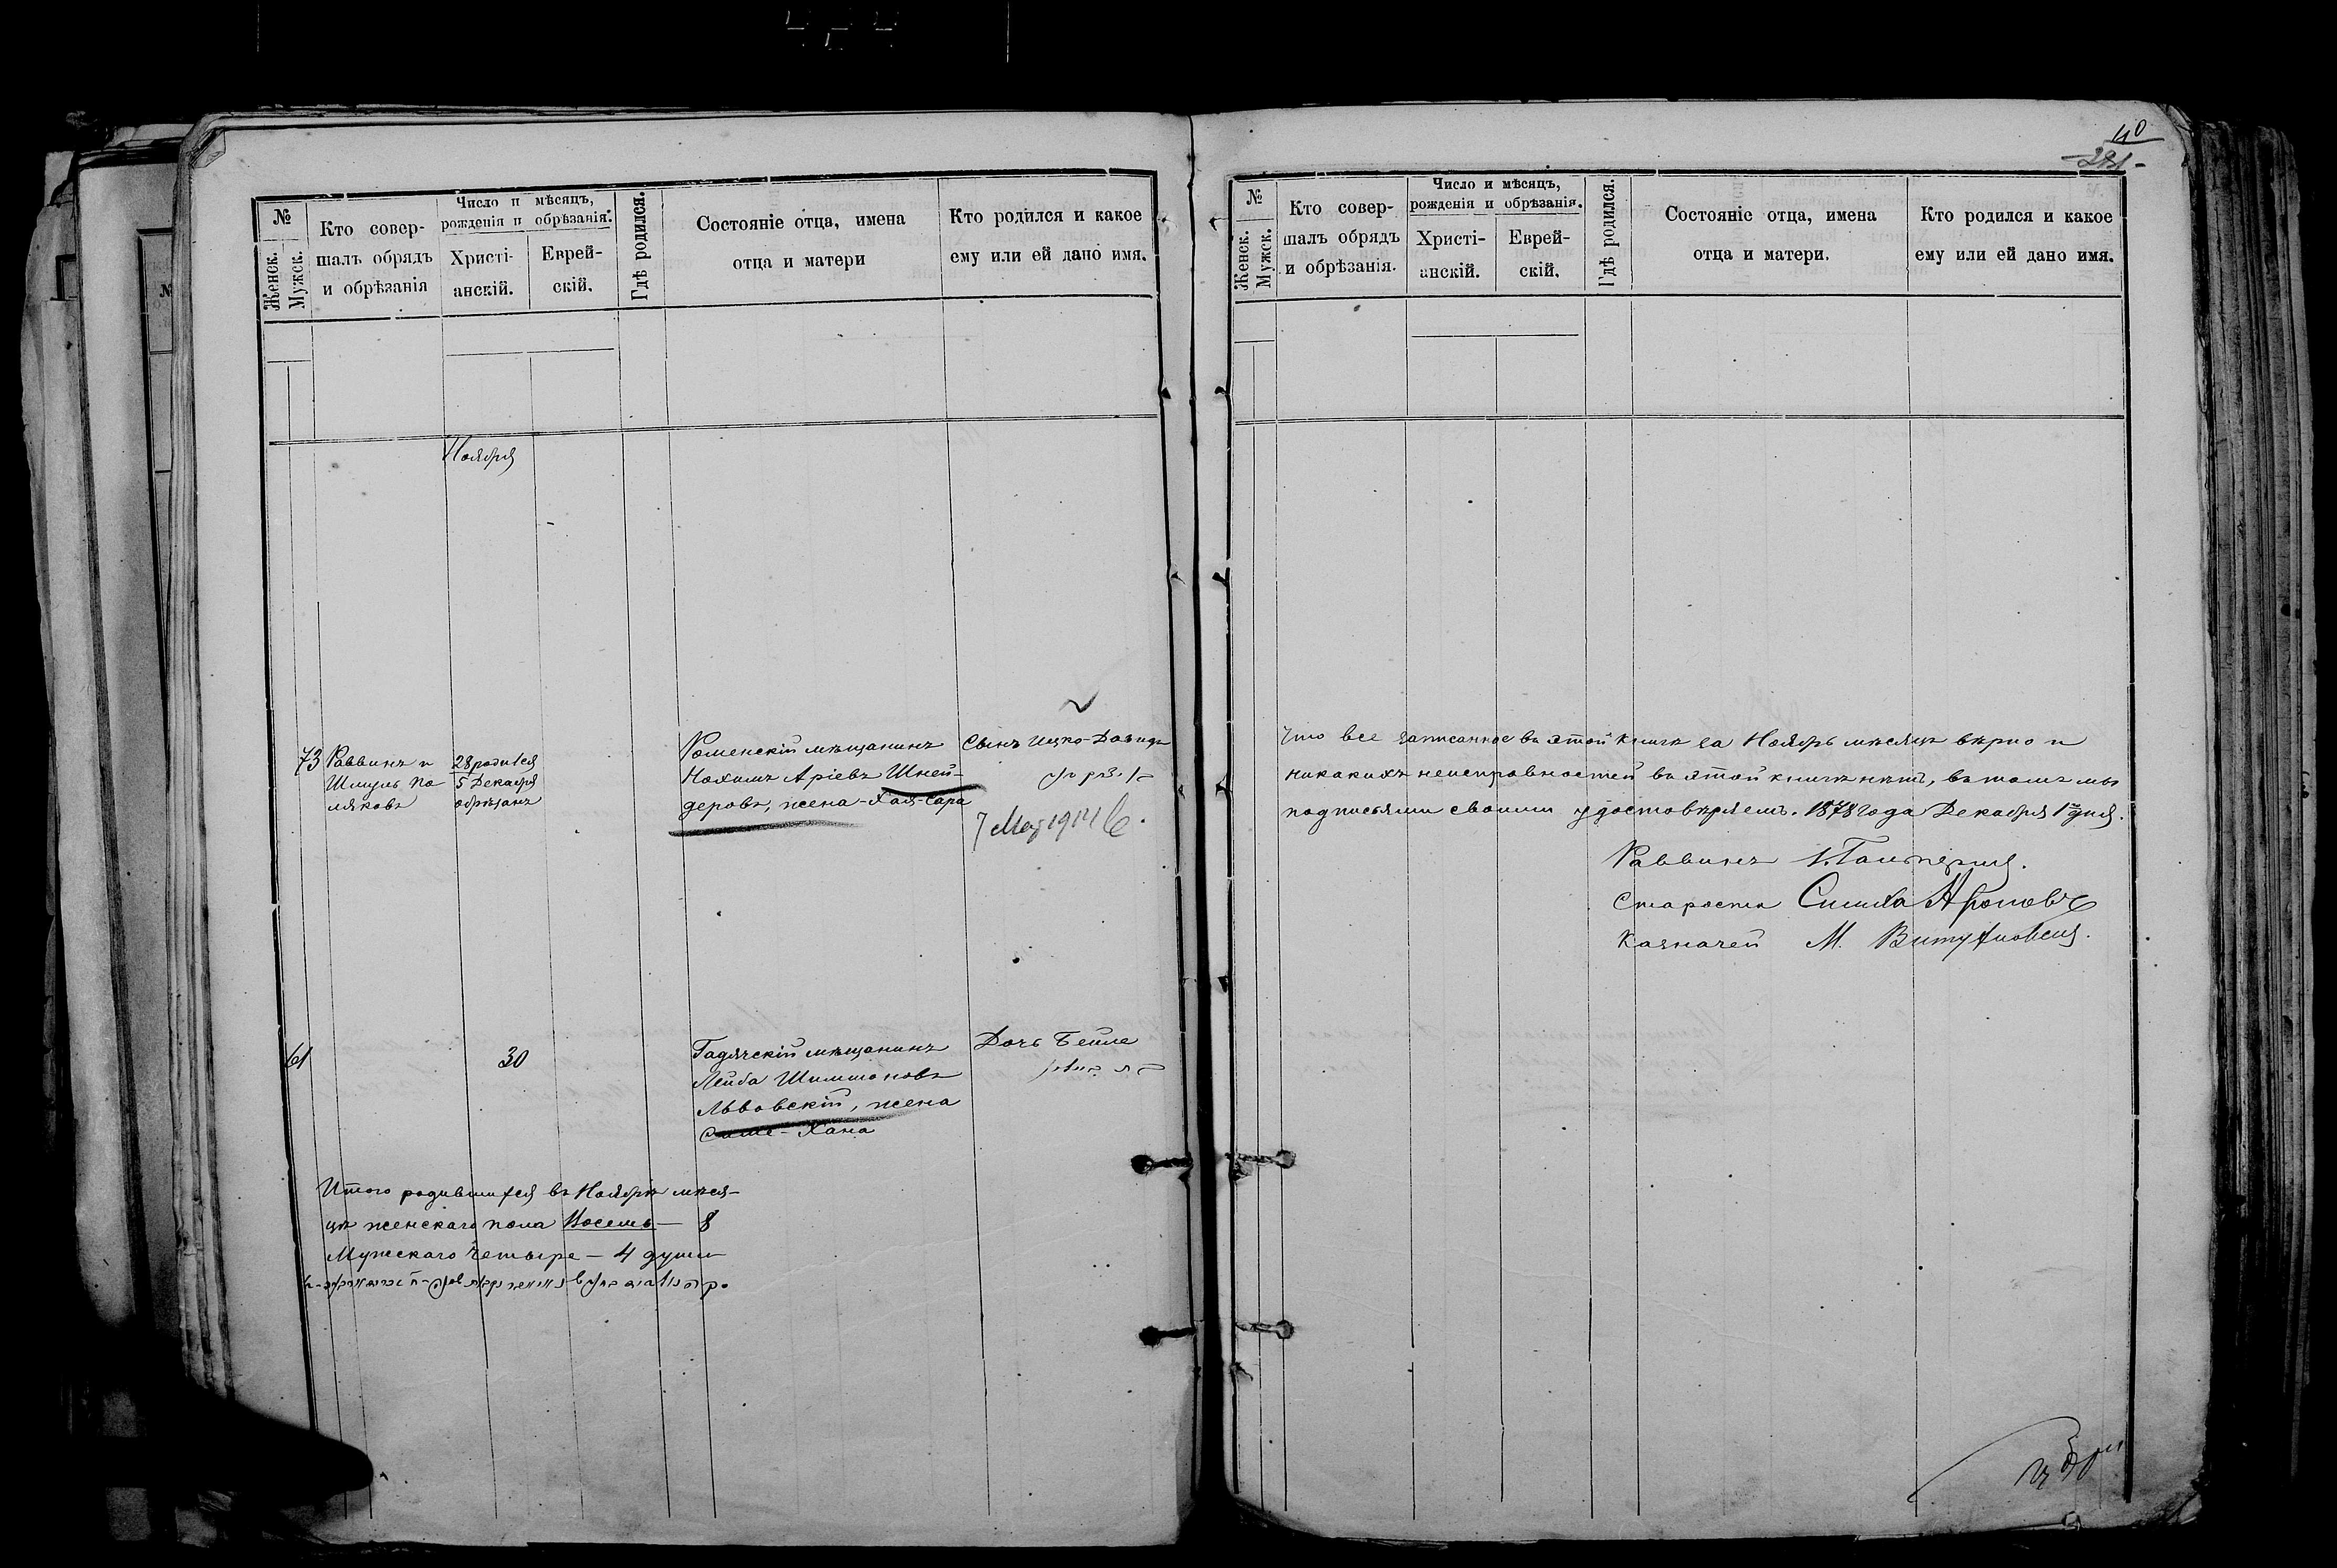 №
Женск.
Мужск.
Кто совер-
шалъ обрядъ
и обрѣзанія
Число и мѣсяцъ,
рожденія и обрѣзанія.
Христі-
анскій.
Еврей-
скій.
Гдѣ родился.
Состояніе отца, имена
отца и матери
Кто родился и какое
ему или ей дано имя.
Ноября
73
Раввинъ и
Шмуль По
ляковъ
28 родился
5 Декабря
обрѣзанъ
Роменскій мѣщанинъ
Нохимъ Аріевъ Шней-
деровъ, жена-Хая-Сара
Сынъ Ицко-Давидъ
7 1914
61
30
Гадячскій мѣщанинъ
Лейба Шимшоновъ
Львовскій, жена
Симе-Хана
Дочь Бейле
Итого родившихся въ Ноябрѣ мѣся-
цѣ женскаго пола Восемь — 8
Мужскаго Четыре — 4 души
40
281
№
Женск.
Мужск.
Кто совер-
шалъ обрядъ
и обрѣзанія.
Число и мѣсяцъ,
рожденія и обрѣзанія.
Христі-
анскій.
Еврей-
скій.
Гдѣ родился.
Состояніе отца, имена
отца и матери.
Кто родился и какое
ему или ей дано имя.
Что все записанное въ этой книгѣ за Ноябрь мѣсяцъ вѣрно и
никакихъ неисправностей въ этой книгѣ нѣтъ, въ томъ мы
подписями своими удостовѣряемъ. 1878 года Декабря 1 дня.
Раввинъ
Староста Симха Ароновъ
Казначей М.